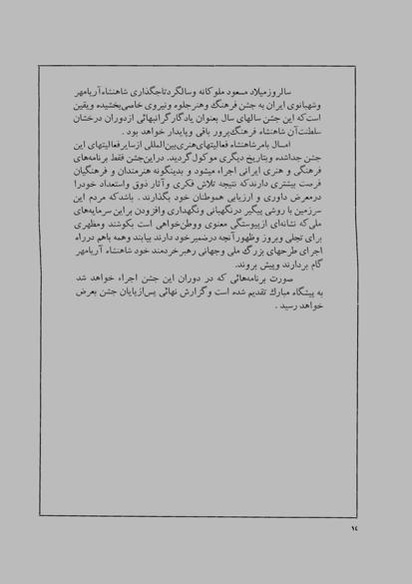 سالروز میلاد مسعود ملوکانه وسالگرد تاجگذاری شاهنشاه آریامهر
وشهبانوی ایران به جشن فرهنگ وهنر جلوه ونیروی خاصی بخشیده ویقین
است که این جشن سالهای سال بعنوان یادگار گرانبهائی ازدوران درخشان
سلطنت آن شاهنشاه فرهنگ پرور باقی وپایدار خواهد بود .
امسال بامر شاهنشاه فعالیتهای هنری بین المللی از سایر فعالیتهای این
جشن جداشده وبتاریخ دیگری موکول گردید. دراین جشن فقط برنامه‌های
فرهنگی و هنری ایرانی اجراء میشود و بدینگونه هنرمندان و فرهنگیان
فرصت بیشتری دارند که نتیجه تلاش فکری و آثار ذوق واستعداد خود را
درمعرض داوری و ارزیابی هموطنان خود بگذارند. باشد که مردم این
سرزمین با روشی پیگیر درنگهبانی ونگهداری وافزودن براین سرمایه‌های
ملی که نشانه‌ای ازپیوستگی معنوی ووطن‌خواهی است بکوشند ومظهری
برای تجلی وبروز وظهور آنچه درضمیر خود دارند بیابند وهمه باهم درراه
اجرای طرحهای بزرگ ملی وجهانی رهبر خردمند خود شاهنشاه آریامهر
گام بردارند وپیش بروند.
صورت برنامه‌هائی که در دوران این جشن اجراء خواهد شد
به پیشگاه مبارک تقدیم شده است وگزارش نهائی پس ازپایان جشن بعرض
خواهد رسید .
١٤